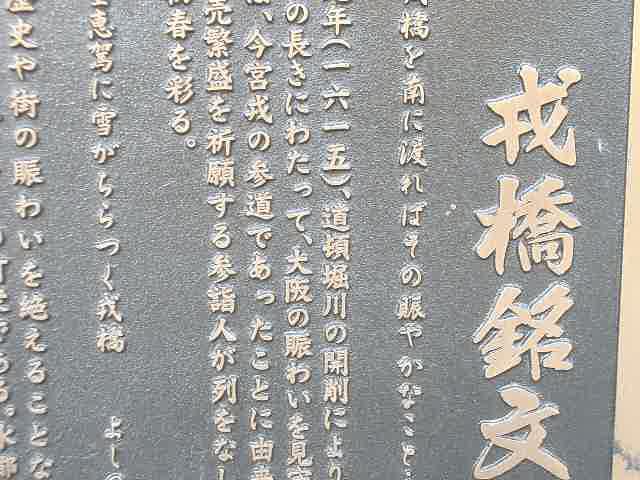 戎橋銘文
橋を南に渡ればその賑やかなこと
年(一六一五)、道頓堀川の開削により
の長きにわたって、大阪の賑わいを見守
、今宮戎の参道であったことに由来
売繁盛を祈願する参詣人が列をなし
春を彩る。
恵駕に雪がちらつく戎橋 よし
歴史や街の賑わいを絶えることな
である。水都